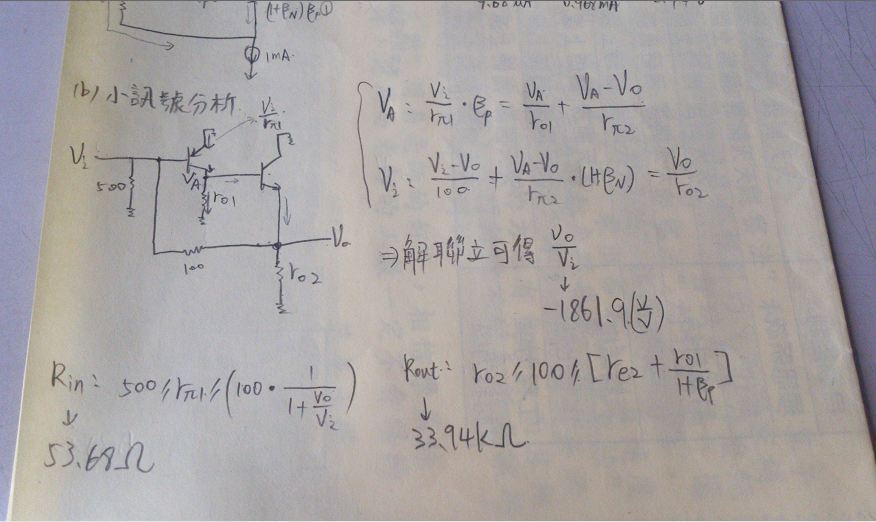 (1+βN) ①
1mA.
(b) 小訊號分析.
Vi/rπ1
Vi
500
VA
ro1
100
Vo
ro2
VA: Vi/rπ1 · βp = VA/ro1 + VA-Vo/rπ2
Vi: Vi-Vo/100 + VA-Vo/rπ2 · (1+βN) = Vo/ro2
⇒ 解聯立可得 Vo/Vi
↓
-1861.9 (V/V)
Rin: 500 // rπ1 // (100 · 1/1+Vo/Vi)
↓
53.68Ω
Rout: ro2 // 100 // [re2 + ro1/1+βp]
↓
33.94kΩ